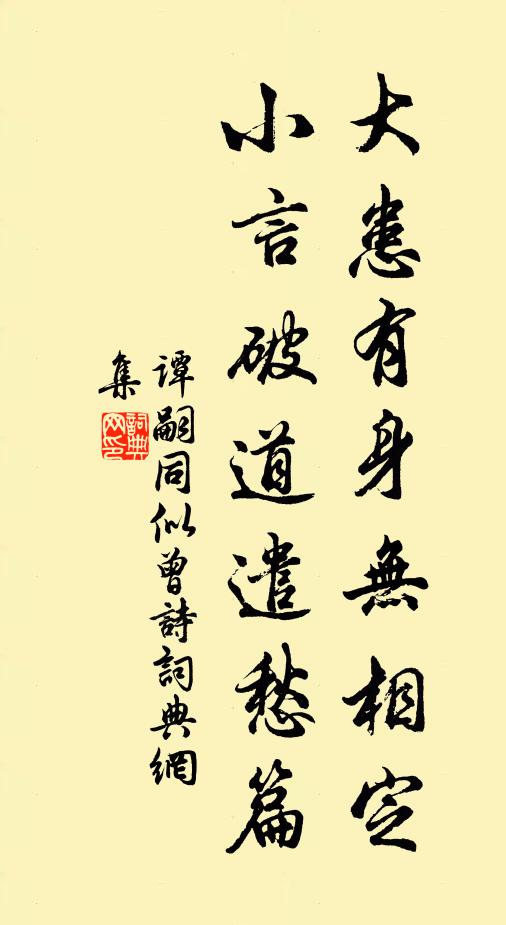 大患有身無相定
小言破道遣愁篇
譚嗣同似曾詩詞典網
集
詞典網印